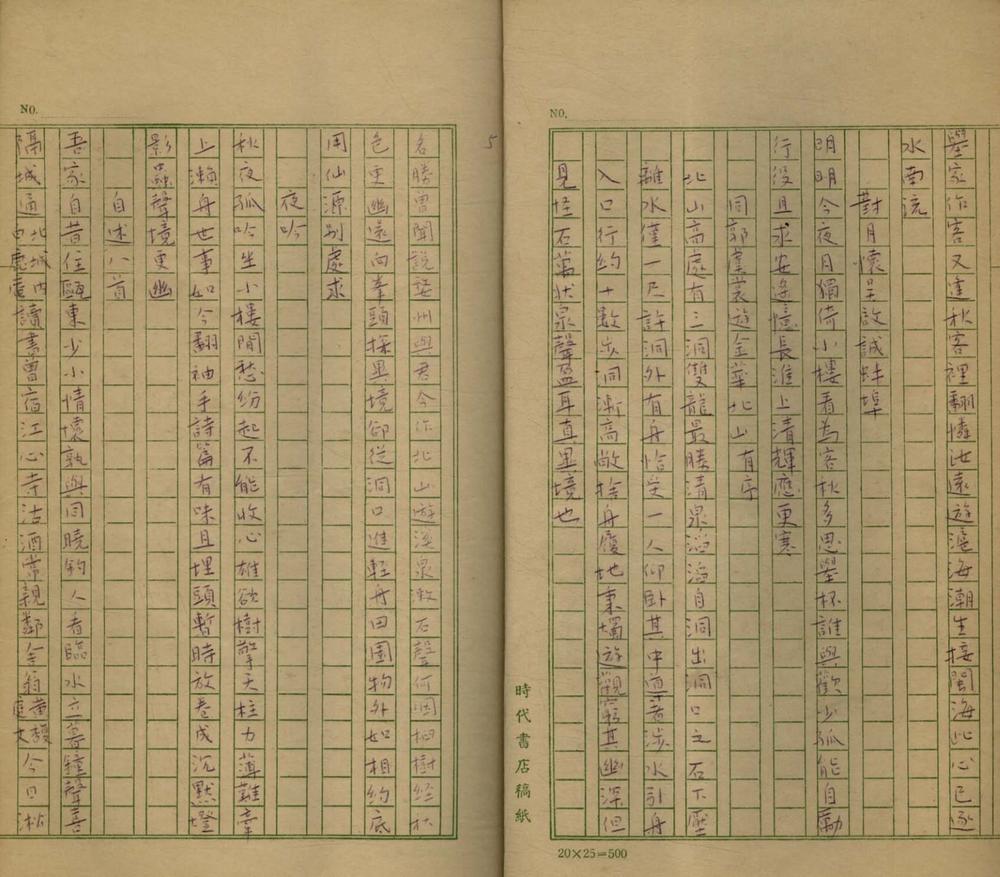 NO.
舉家作客又逢秋客裡翻憐汝遠遊滬海潮生接閩海此心已逐
水南流
對月懷呈設誠蚌埠
明明今夜月獨倚小樓看為客秋多思舉杯誰與歡少孤能自勵
行役且求安遙憶長淮上清輝應更寒
同郭虞裳遊金華北山有序
北山高處有三洞雙龍最勝清泉滔滔自洞出洞口之石下壓
離水僅一尺許洞外有舟恰受一人仰臥其中導者涉水引舟
入口行約十數步洞漸高敞捨舟履地秉燭遊觀窮其幽深但
見怪石萬狀泉聲盈耳真異境也
時代書店稿紙
20×25=500
5
NO.
名勝曾聞說婺州與君今作北山遊溪泉漱石聲何細樹經秋
色更幽還向峯頭探異境卻從洞口進輕舟田園物外如相約底
用仙源別處求
夜吟
秋夜孤吟坐小樓閒愁紛起不能收心雄欲樹擎天柱力薄難牽
上瀨舟世事如今翻袖手詩篇有味且埋頭暫時放卷成沉默燈
影蟲聲境更幽
自述八首
吾家自昔住甌東少小情懷孰與同曉釣人看臨水立暮鐘聲喜
隔城通北城內白鹿庵讀書曾宿江心寺沽酒常親鄰舍翁黃馥庭丈今日淞